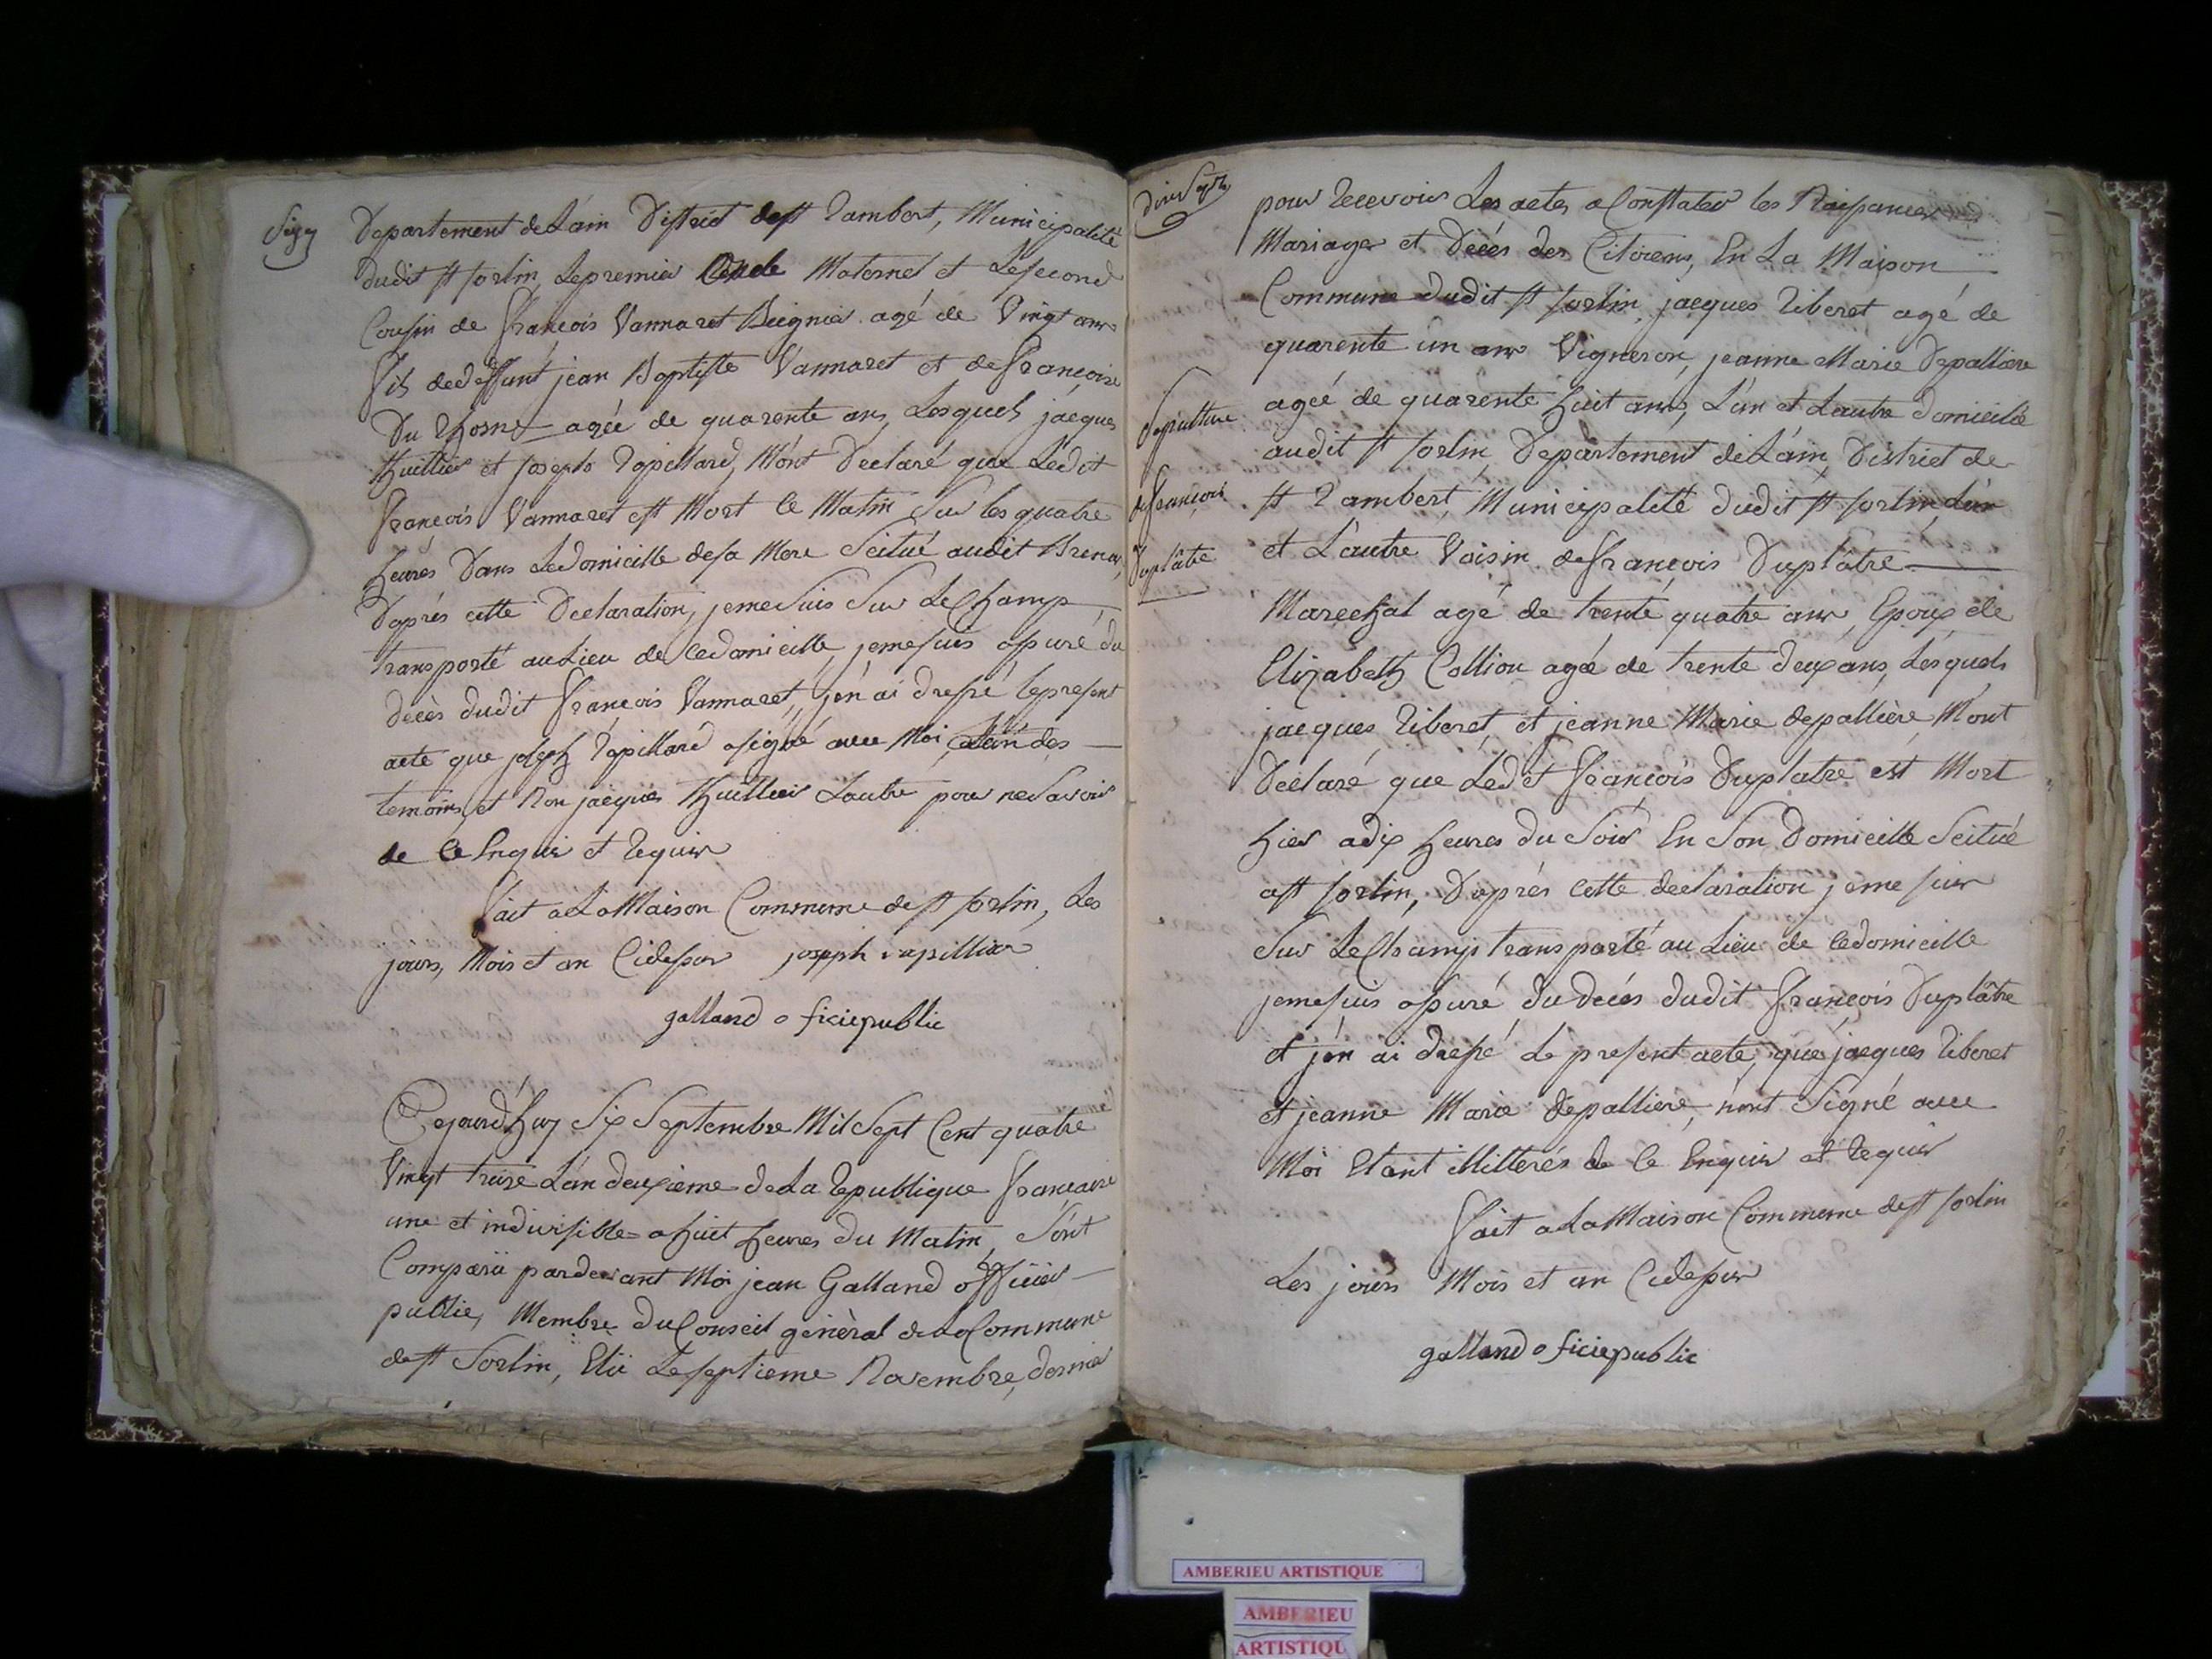 Seize
Departement de L'ain District de st Rambert, Municipalité
dudit st sorlin, Le premier Oncle Maternel et Le second
Cousin de françois Vannaret Beignier agé de Vingt ans
fils de deffunt jean Baptiste Vannaret et de françoise
Du Rhosne agée de quarente ans, Lesquels jacques
thuillier et joseph Papillard, M'ont Declaré que Ledit
françois Vannaret est Mort Ce Matin Sur les quatre
heures Dans Le domicille de sa Mere Scitué audit
D'aprés cette Declaration, je me Suis Sur Le Champ
transporté au Lieu de Ce domicille, je me suis assuré du
decès dudit françois Vannaret, j'en ai dressé le present
acte que joseph Papillard a signé avec Moi, L'un des
temoins, et Non jacques thuillier Lautre pour ne Savoir
de Ce Enquis et Requis
fait a La Maison Commune de st sorlin, Les
jours, Mois et an Cidessus joseph papilliar
galland o ficiepublic
Cejourd'huy Six Septembre Mil Sept Cent quatre
Vingt treize L'an deuxieme de La Republique francaise
une et indivisible a huit heures du Matin, Sont
Comparu pardevant Moi jean Galland officier
public, Membre du Conseil génèral de La Commune
de st Sorlin, Elü Le septieme Novembre, dernier
Dix Sept
pour Recevoir Les actes a Constater les Naissances
Mariages et Décés des Citoiens, En La Maison
Commune dudit st sorlin, jacques Riberet agé de
quarente un ans Vigneron, jeanne Marie Depalliere
agée de quarente huit ans, L'un et Lautre domicilié
audit st sorlin, Departement de L'ain, District de
st Rambert, Municipalité dudit st sorlin, L'un
et L'autre Voisin de françois Duplâtre
Sepulture
de françois
Duplâtre
Marechal agé de trente quatre ans, Epoux de
Elizabeth Collion agée de trente deux ans, Lesquels
jacques Riberet, et jeanne Marie depallière, M'ont
Declaré que Ledit françois Duplatre est Mort
hier a dix heures du Soir En Son Domicille Scitué
a st sorlin, D'aprés cette declaration je me suis
Sur Le Champ transporté au Lieu de Ce domicille
je me suis assuré du decés dudit françois Duplâtre
et j'en ai dressé Le present acte, que jacques Riberet
et jeanne Marie Depalliere, n'ont Signé avec
Moi Etant illitterés de Ce Enquis et Requis
fait a La Maison Commune de st sorlin
Les jours Mois et an Cidessus
galland o ficiepublic
AMBERIEU ARTISTIQUE
AMBERIEU
ARTISTIQU